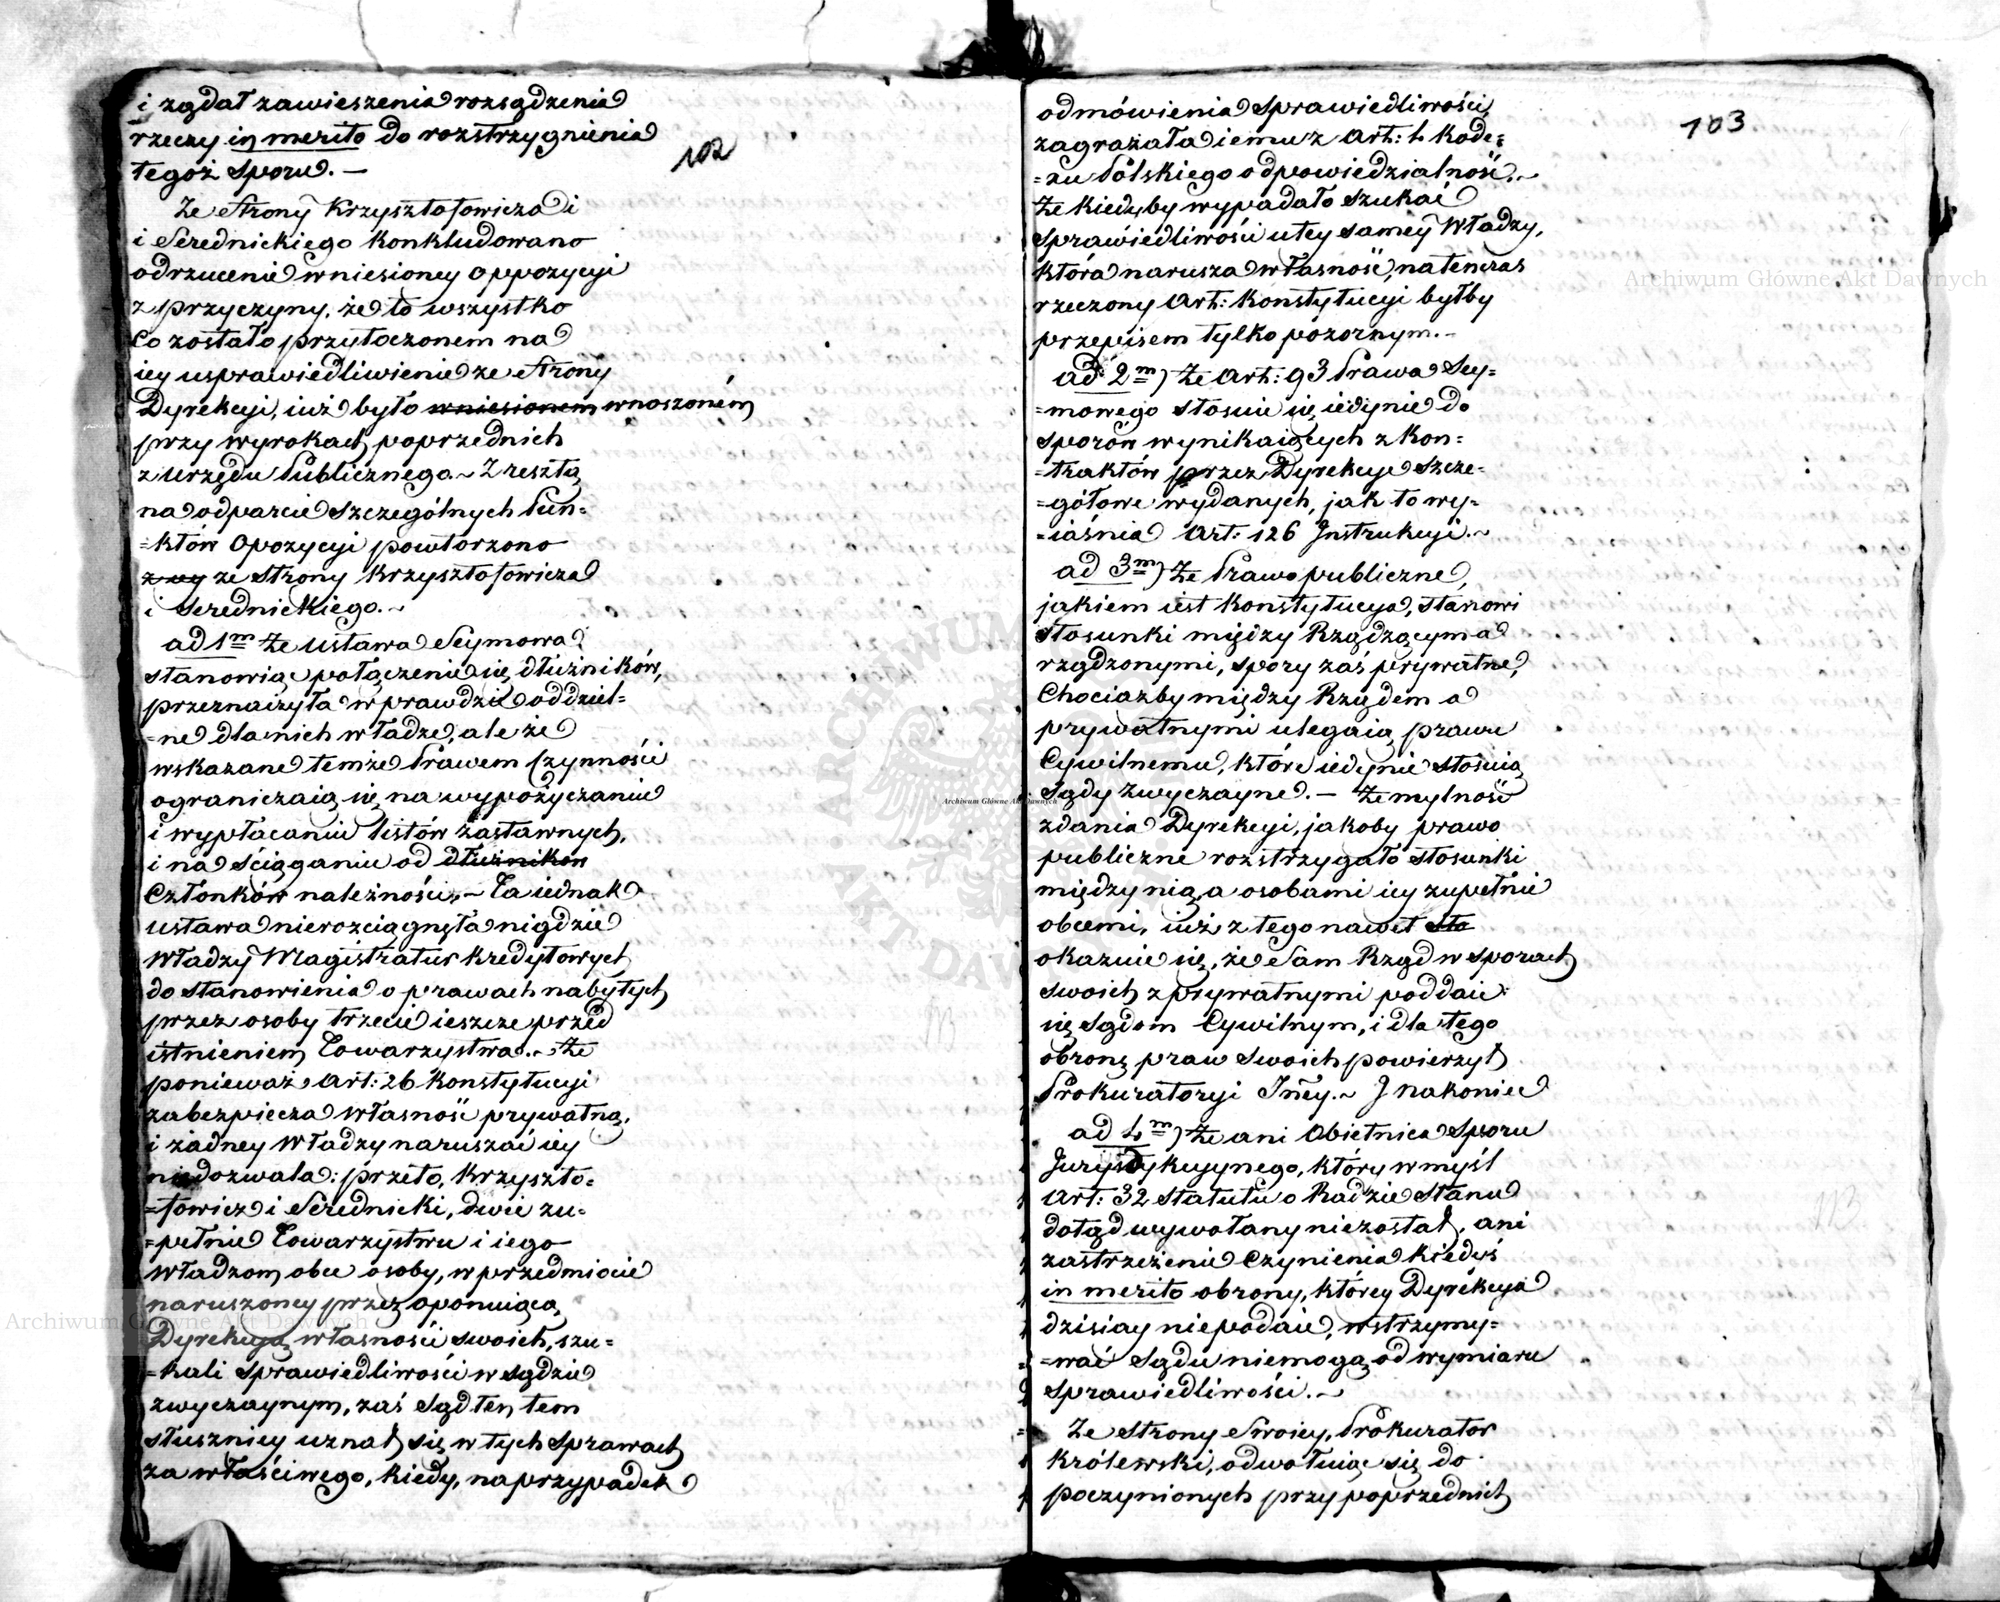 102
i żądał zawieszenia rozsądzenia
rzeczy in merito do rozstrzygnienia
tegoż Sporu. —
Ze Strony Krzysztofowicza i
i Serednickiego konkludowano
odrzucenie wniesioney oppozycyi
z przyczyny, że to wszystko
Co zostało przytoczonem na
iey usprawiedliwienie ze Strony
Dyrekcyi, iuż było wniesionem wnoszoném
przy wyrokach poprzednich
z Urzędu Publicznego. ~ Zresztą
na odparcie szczególnych Pun=
=któw Opozycyi powtorzono
z wy ze Strony Krzysztofowicza
i Serednickiego. ~
ad 1m że ustawa Seymowa
stanowiąc połączenie się dłużników,
przeznaczyła wprawdzie oddziel=
=ne dla nich władze, ale że
wskazane temże Prawem Czynności
ograniczaią się na wypożyczaniu
i wypłacaniu listów zastawnych,
i na ściąganiu od dłużników
Członków należności, ~ Ta iednak
ustawa nierozciągnęła nigdzie
władzy Magistratur Kredytowych
do stanowienia o prawach nabytych
przez osoby trzecie ieszcze przed
istnieniem Towarzystwa. ~ Że
ponieważ Art: 26 Konstytucyi
zabezpiecza własność prywatną,
i żadney Władzy naruszać iey
niedozwala: przeto, Krzyszto=
=fowicz i Serednicki, dwie zu=
=pełnie Towarzystwu i iego
Władzom obce osoby, w przedmiocie
naruszoney przez oponuiącą
Dyrekcyą własności swoich, szu=
=kali Sprawiedliwości w Sądzie
zwyczaynym, zaś Sąd ten tem
słuszniey uznał się w tych Sprawach
za właściwego, kiedy, na przypadek
103
odmówienia Sprawiedliwości,
zagrażała iemu z Art: 4 Kode=
=xu Polskiego odpowiedzialność. ~
Że kiedyby wypadało szukać
Sprawiedliwości u tey samey Władzy,
która narusza własność, natenczas
rzeczony Art: Konstytucyi byłby
przepisem tylko pozornym. —
ad 2m) Że Art: 93 Prawa Sey=
=mowego stosuie się iedynie do
sporów wynikaiących z Kon=
=traktów przez Dyrekcye Szcze=
=gółowe wydanych, jak to wy=
=iaśnia Art: 126 Instrukcyi. ~
ad 3m) Że Prawo publiczne,
jakiem iest Konstytucya, stanowi
stosunki między Rządzącym a
rządzonymi, spory zaś prywatne,
Chociażby między Rządem a
prywatnymi ulegaią prawu
Cywilnemu, które iedynie stosuią
Sądy zwyczayne. — Że mylność
zdania Dyrekcyi, jakoby prawo
publiczne rozstrzygało stosunki
między nią, a osobami iey zupełnie
obcemi, iuż z tego nawet sto
okazuie się, że Sam Rząd w sporach
swoich z prywatnymi poddaie
się Sądom Cywilnym, i dla tego
obronę praw swoich powierzył
Prokuratoryi Jney. ~ J nakoniec
ad 4m) Że ani Obietnica Sporu
Jurysdykcyynego, który w myśl
Art: 32 Statutu o Radzie Stanu
dotąd wywołany niezostał, ani
zastrzeżenie Czynienia kiedyś
in merito obrony, którey Dyrekcya
dzisiay niepodaie, wstrzymy=
=wać Sądu niemogą od wymiaru
Sprawiedliwości. ~
Ze Strony Swoiey, Prokurator
Królewski, odwołuiąc się do
poczynionych przy poprzednich
Archiwum Główne Akt Dawnych
Archiwum Główne Akt Dawnych
Archiwum Główne Akt Dawnych